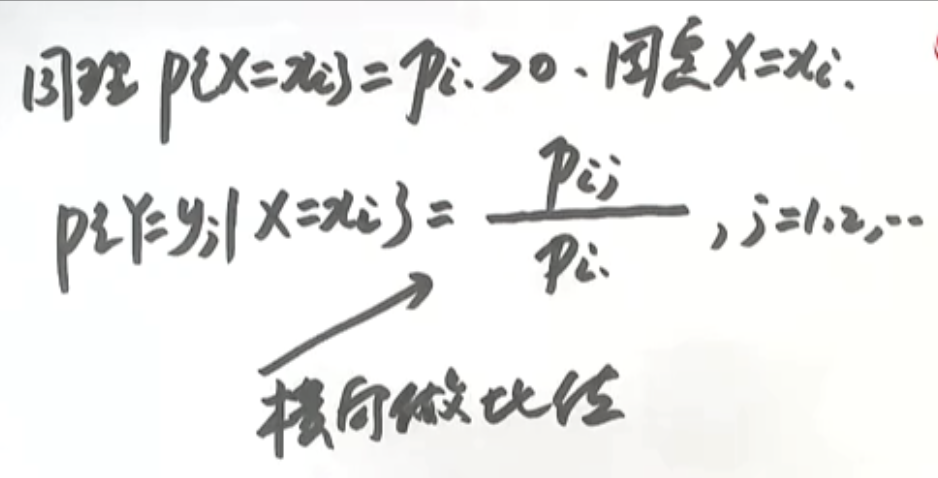 同理 P{X=xi}=Pi.>0. 固定X=xi.
P{Y=yj|X=xi}=Pij/Pi. , j=1.2,…
横向做比值